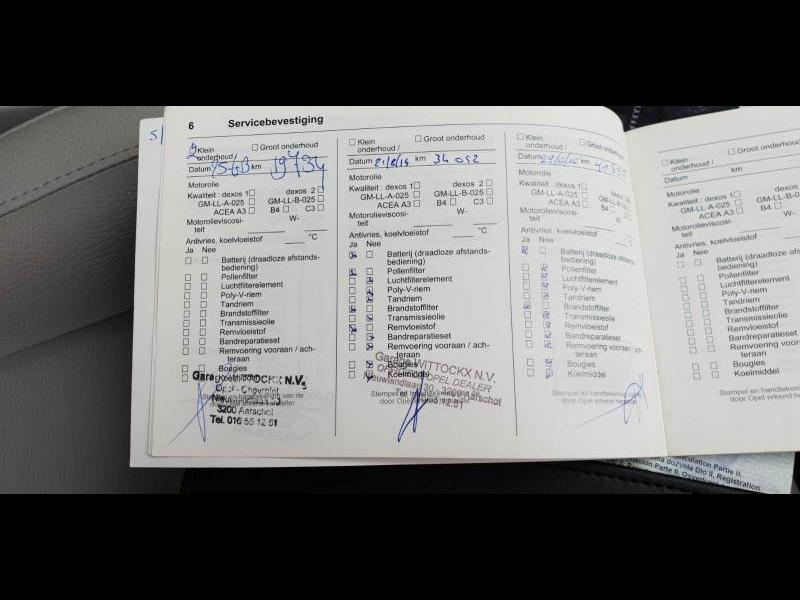 6 Servicebevestiging
Klein onderhoud / Groot onderhoud
Datum km 19734
Motorolie
Kwaliteit: dexos 1 dexos 2
GM-LL-A-025 GM-LL-B-025
ACEA A3 B4 C3
Motorolieviscosi-
teit W-
Antivries, koelvloeistof °C
Ja Nee
Batterij (draadloze afstands-
bediening)
Pollenfilter
Luchtfilterelement
Poly-V-riem
Tandriem
Brandstoffilter
Transmissieolie
Remvloeistof
Bandreparatieset
Remvoering vooraan / ach-
teraan
Bougies
Koelmiddel
WITTOCKX N.V.
Opel - Chevrolet
3200 Aarschot
Tel. 016 55 12 51
Klein onderhoud / Groot onderhoud
Datum km 34 092
Motorolie
Kwaliteit: dexos 1 dexos 2
GM-LL-A-025 GM-LL-B-025
ACEA A3 B4 C3
Motorolieviscosi-
teit W-
Antivries, koelvloeistof °C
Ja Nee
Batterij (draadloze afstands-
bediening)
Pollenfilter
Luchtfilterelement
Poly-V-riem
Tandriem
Brandstoffilter
Transmissieolie
Remvloeistof
Bandreparatieset
Remvoering vooraan / ach-
teraan
Bougies
Koelmiddel
Garage WITTOCKX N.V.
OPEL DEALER
Nieuwlandlaan 30 - 3200 Aarschot
Klein onderhoud / Groot onderhoud
Datum km
Motorolie
Kwaliteit: dexos 1 dexos 2
GM-LL-A-025 GM-LL-B-025
ACEA A3 B4
Motorolieviscosi-
teit W-
Antivries, koelvloeistof
Ja Nee
Batterij (draadloze afstands-
bediening)
Pollenfilter
Luchtfilterelement
Poly-V-riem
Tandriem
Brandstoffilter
Transmissieolie
Remvloeistof
Bandreparatieset
Remvoering vooraan / ach-
teraan
Bougies
Koelmiddel
Stempel en handtekening
door Opel erkend
Klein onderhoud / Groot onderhoud
Datum km
Motorolie
Kwaliteit: dexos 1 dexos
GM-LL-A-025 GM-LL-B-025
ACEA A3 B4
Motorolieviscosi-
teit W-
Antivries, koelvloeistof
Ja Nee
Batterij (draadloze afstands-
bediening)
Pollenfilter
Luchtfilterelement
Poly-V-riem
Tandriem
Brandstoffilter
Transmissieolie
Remvloeistof
Bandreparatieset
Remvoering vooraan / ach-
teraan
Bougies
Koelmiddel
Stempel en handteken
door Opel erkend
Partie II,
dozvola Dio II, Registration
Parte II,